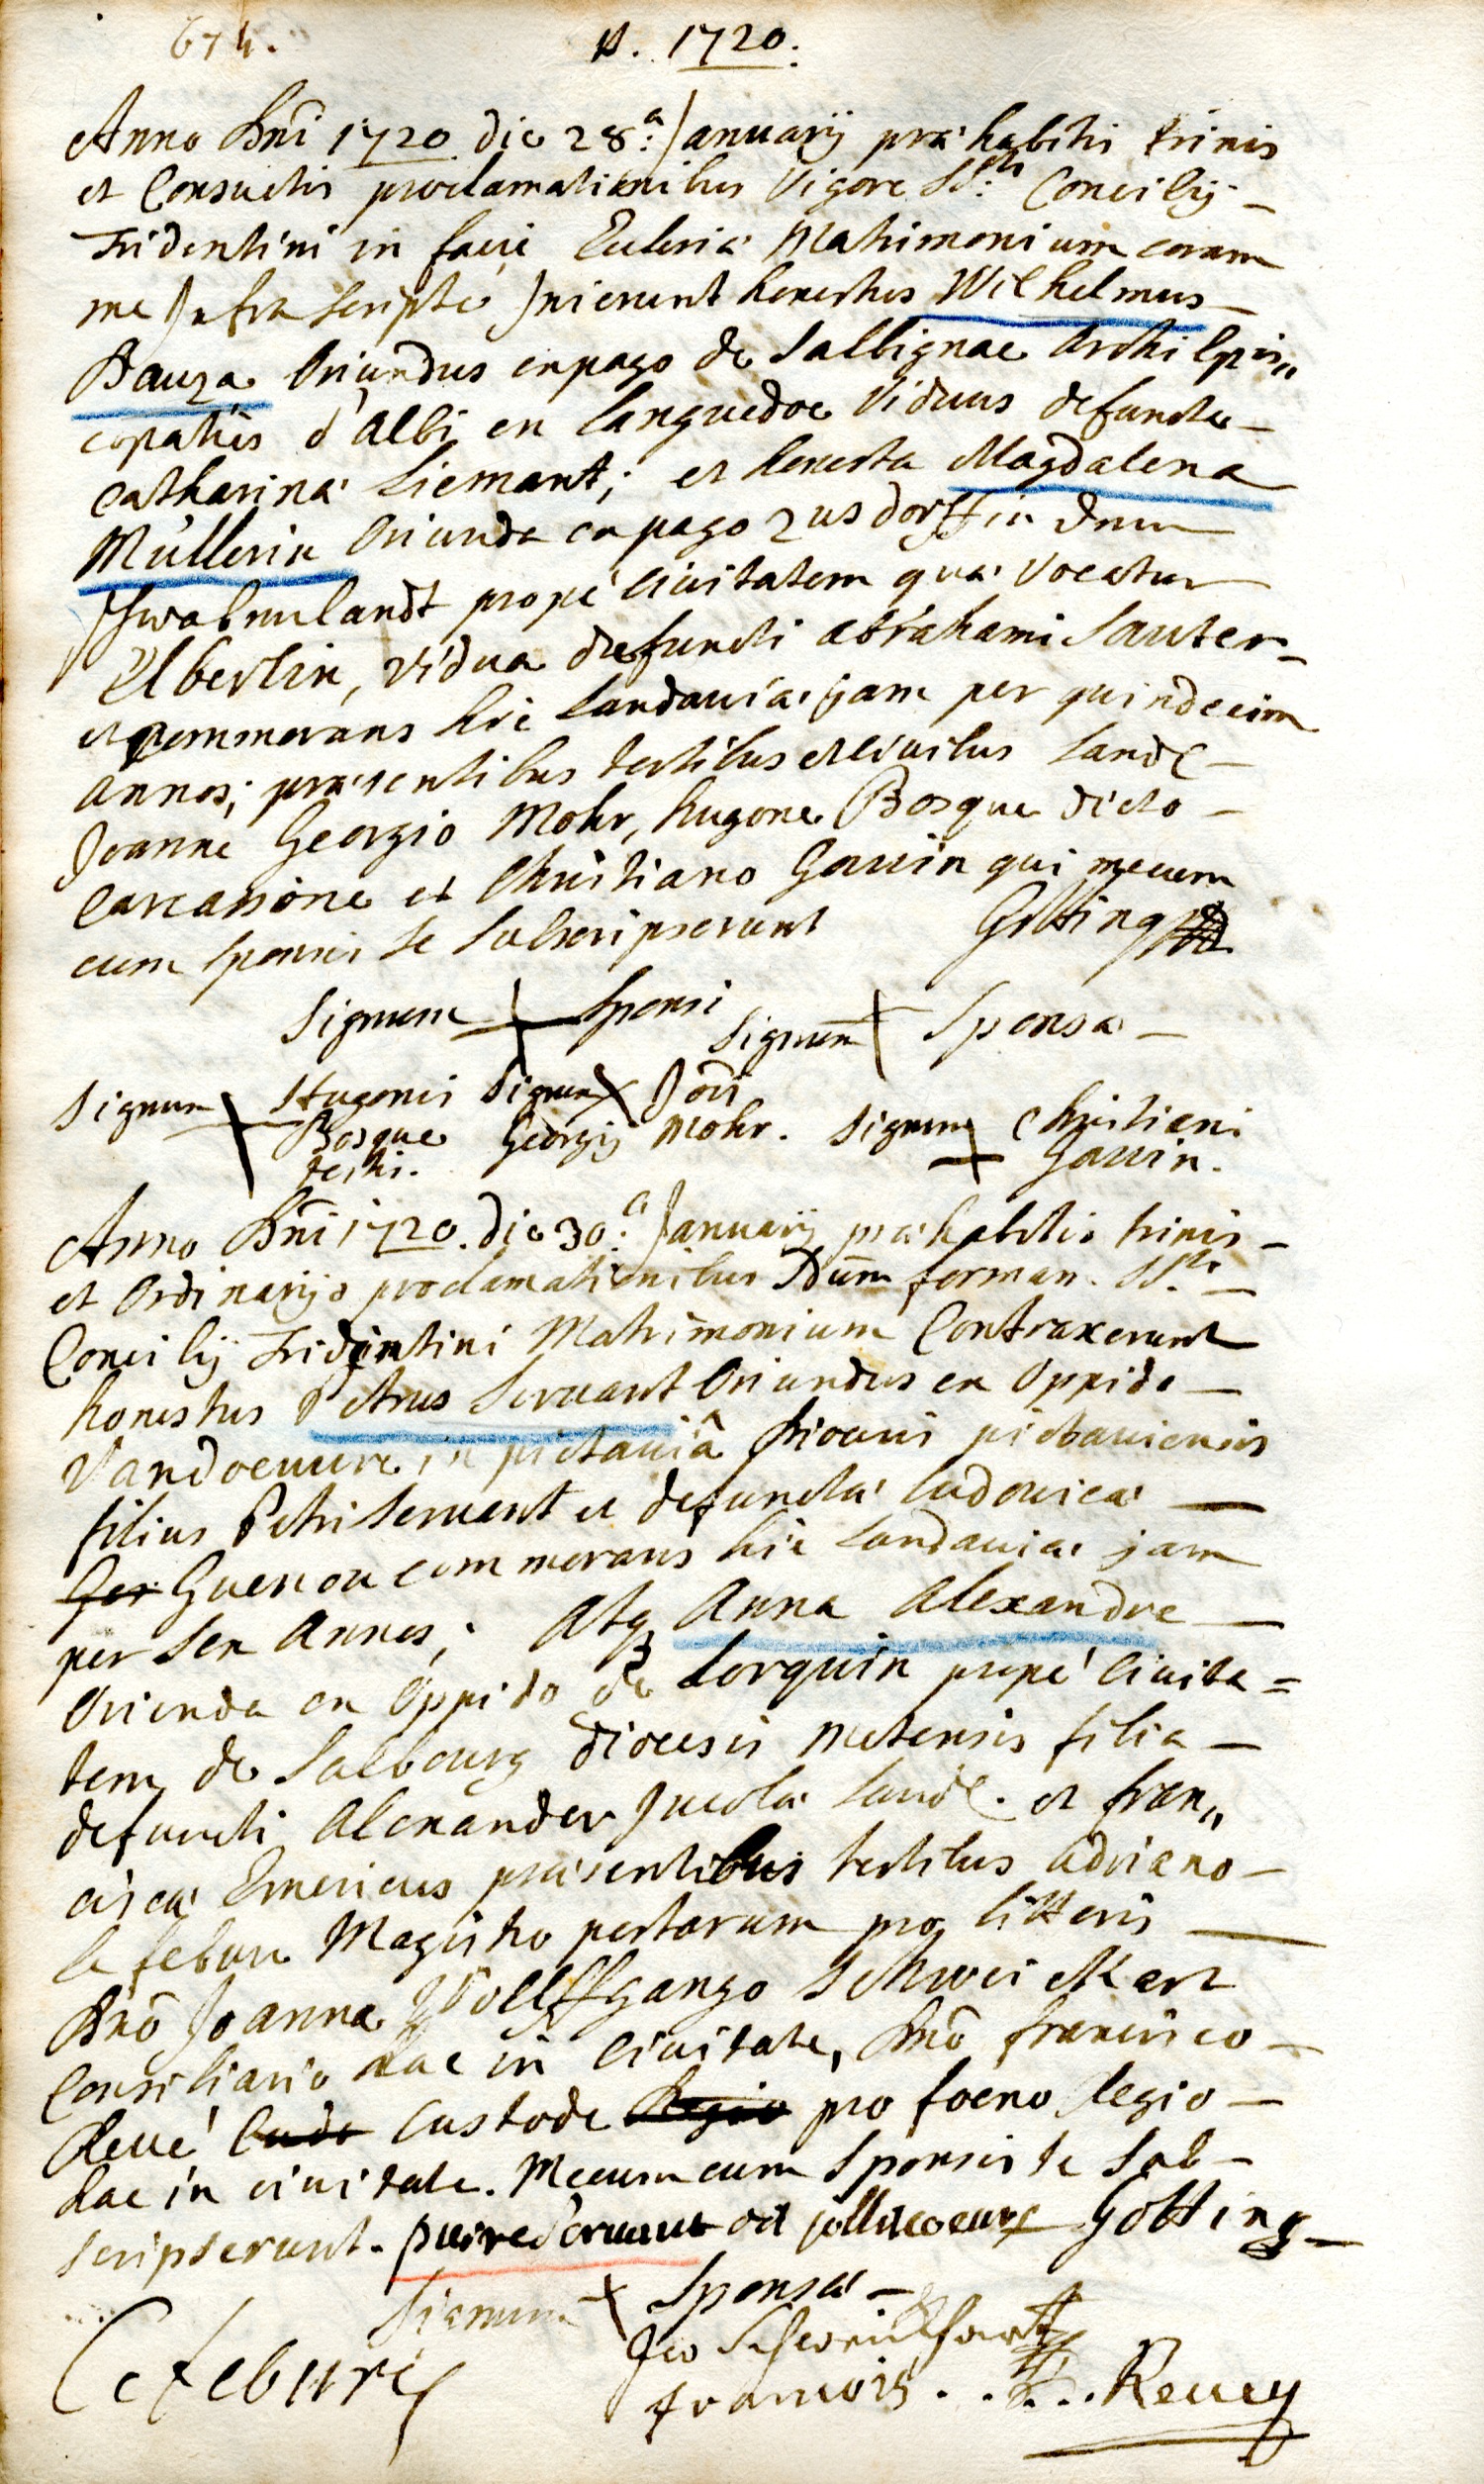 674.
A. 1720.
Anno Dnĩ 1720 die 28ª: Januarij præhabitis trinis
et Consuetis proclamationibus Vigore SS:ti Concilij –
Tridentini in facie Ecclesiæ Matrimonium coram
me Infra scripto Inierunt honestus Wilhelmus
Bauza Oriundus ex pago de Salbignac Archi Epis„
copatûs d'Albi en Languedoc Viduus defunctæ –
Catharinæ Siemant; et honesta Magdalena
Müllerin Oriunda ex pago Zusdorff in dem
Schwabenlandt propè Civitatem quæ Vocatur
Elberlin, vidua defuncti abrahami Sauter –
et commorans hic Landaviæ jam per quindecim
annos; præsentibus testibus et Civibus Land. –
Joanne Georgio Mohr, hugone Bosque dicto –
Carcassone et Christiano Gauvin qui mecum
cum sponsis se subscripserunt Götting
Signum + Sponsi Signum + Sponsæ –
Signum + Hugonis Signum + Jois
Bosque Georgij Mohr. Signum + Christiani
testis. Gauvin.
Anno Dñi 1720. die 30:ª Januarij præhabitis trinis –
et Ordinarijs proclamationibus Idum forman. SS.ti –
Concilij Tridentini Matrimonium Contraxerunt
honestus Petrus Servant Oriundus ex Oppido –
Vandoeuvre in pictaviâ Diocesis pictaviensis
filius Petri Servent et defunctæ Ludovicæ –
Guenon commorans hic Landaviæ jam
per sex Annos; Atq3 Anna Alexandre –
Oriunda ex Oppido de Lorquin propè Civita=
tem de Salbourg diocesis Metensis filia –
defuncti Alexander Incolæ Land. et fran„
ciscæ Emericus præsentibus testibus adriano –
le febure Magistro portarum pro litteris –
Dnõ Joanne Wollffgango Schweickart
Consiliario hac in Civitate, Dnõ francisco –
Revé Custode pro foeno Regio –
hac in civitate. Mecum cum Sponsis se Sub –
scripserunt. piere servant dit jollicoeur Götting –
Signum + Sponsæ –
Lefebure Jeo Schweickhart
francois . . . . . Reuey